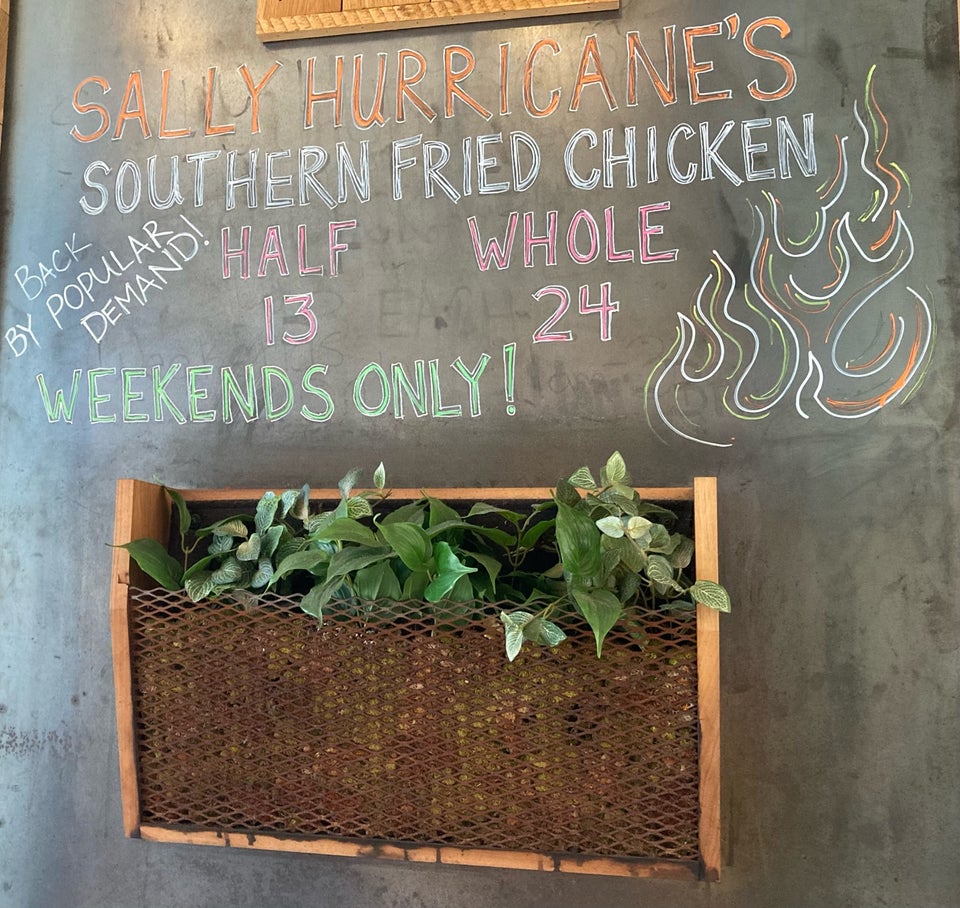 SALLY HURRICANE'S
SOUTHERN FRIED CHICKEN
BACK
BY POPULAR
DEMAND!
HALF WHOLE
13 24
WEEKENDS ONLY!